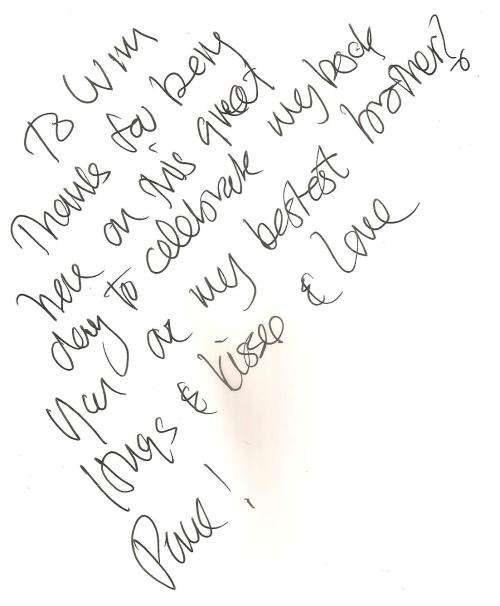 To Wim
Thanks for being
here on this great
day to celebrate my book
You are my bestest brother!
Hugs & kisses & love